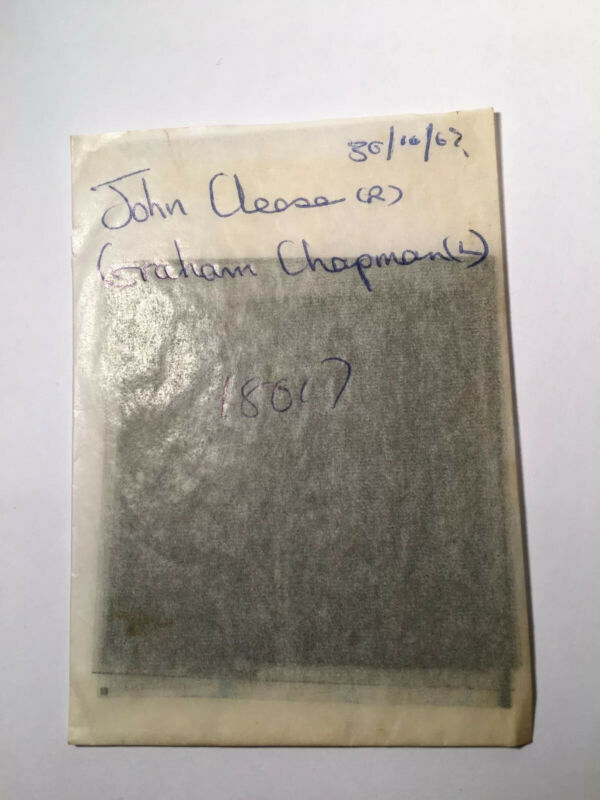 30/10/67.
John Cleese (R)
Graham Chapman (L)
18017